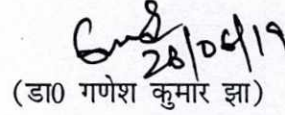 28/06/19
(डा0 गणेश कुमार झा)